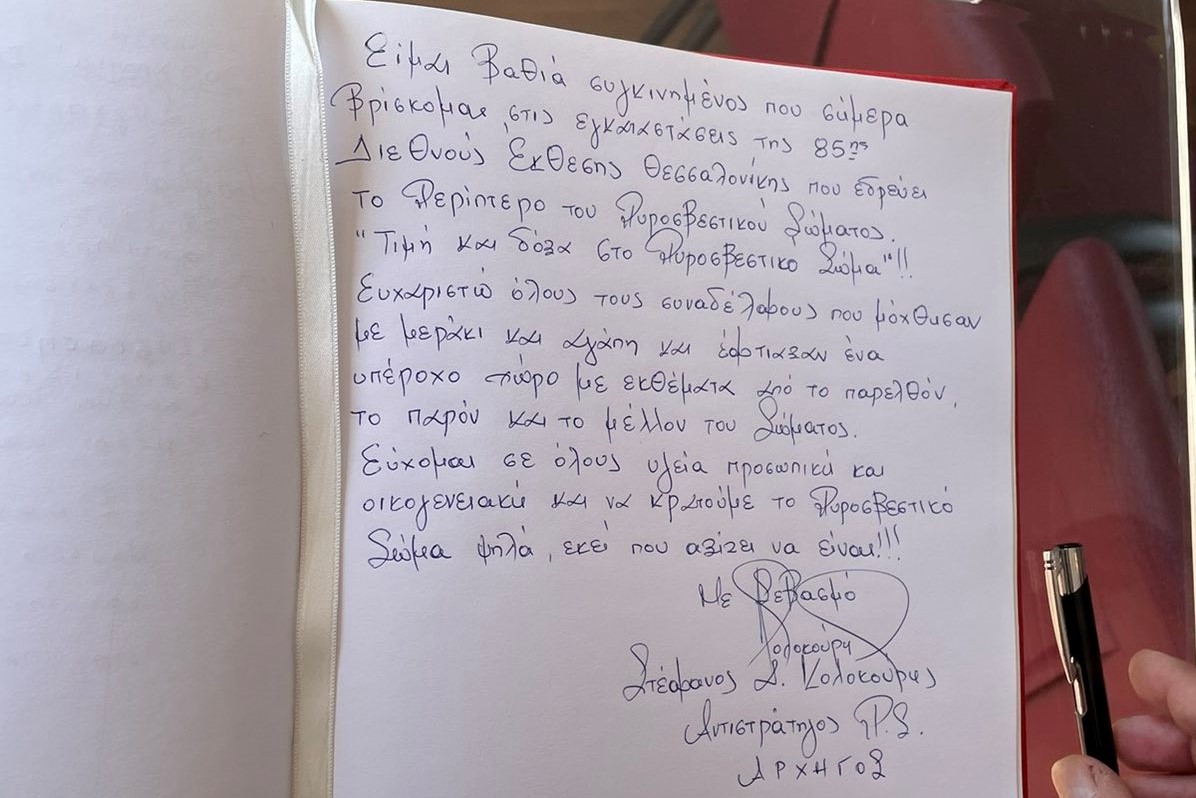 Είμαι βαθιά συγκινημένος που σήμερα
βρίσκομαι στις εγκαταστάσεις της 85ης
Διεθνούς Έκθεσης Θεσσαλονίκης που εδρεύει
το Περίπτερο του Πυροσβεστικού Σώματος.
"Τιμή και δόξα στο Πυροσβεστικό Σώμα"!!
Ευχαριστώ όλους τους συναδέλφους που μόχθησαν
με μεράκι και αγάπη και έφτιαξαν ένα
υπέροχο χώρο με εκθέματα από το παρελθόν,
το παρόν και το μέλλον του Σώματος.
Εύχομαι σε όλους υγεία προσωπική και
οικογενειακή και να κρατούμε το Πυροσβεστικό
Σώμα ψηλά, εκεί που αξίζει να είναι!!!
Με Σεβασμό
Κολοκούρη
Στέφανος Σ. Κολοκούρης
Αντιστράτηγος Π.Σ.
ΑΡΧΗΓΟΣ